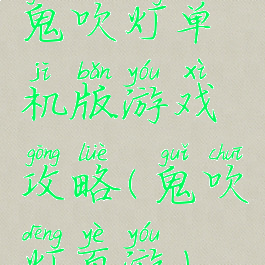 鬼吹灯单
jī bǎn yóu xì
机版游戏
gōng lüè guǐ chuī
攻略(鬼吹
dēng yè yóu
灯页游)